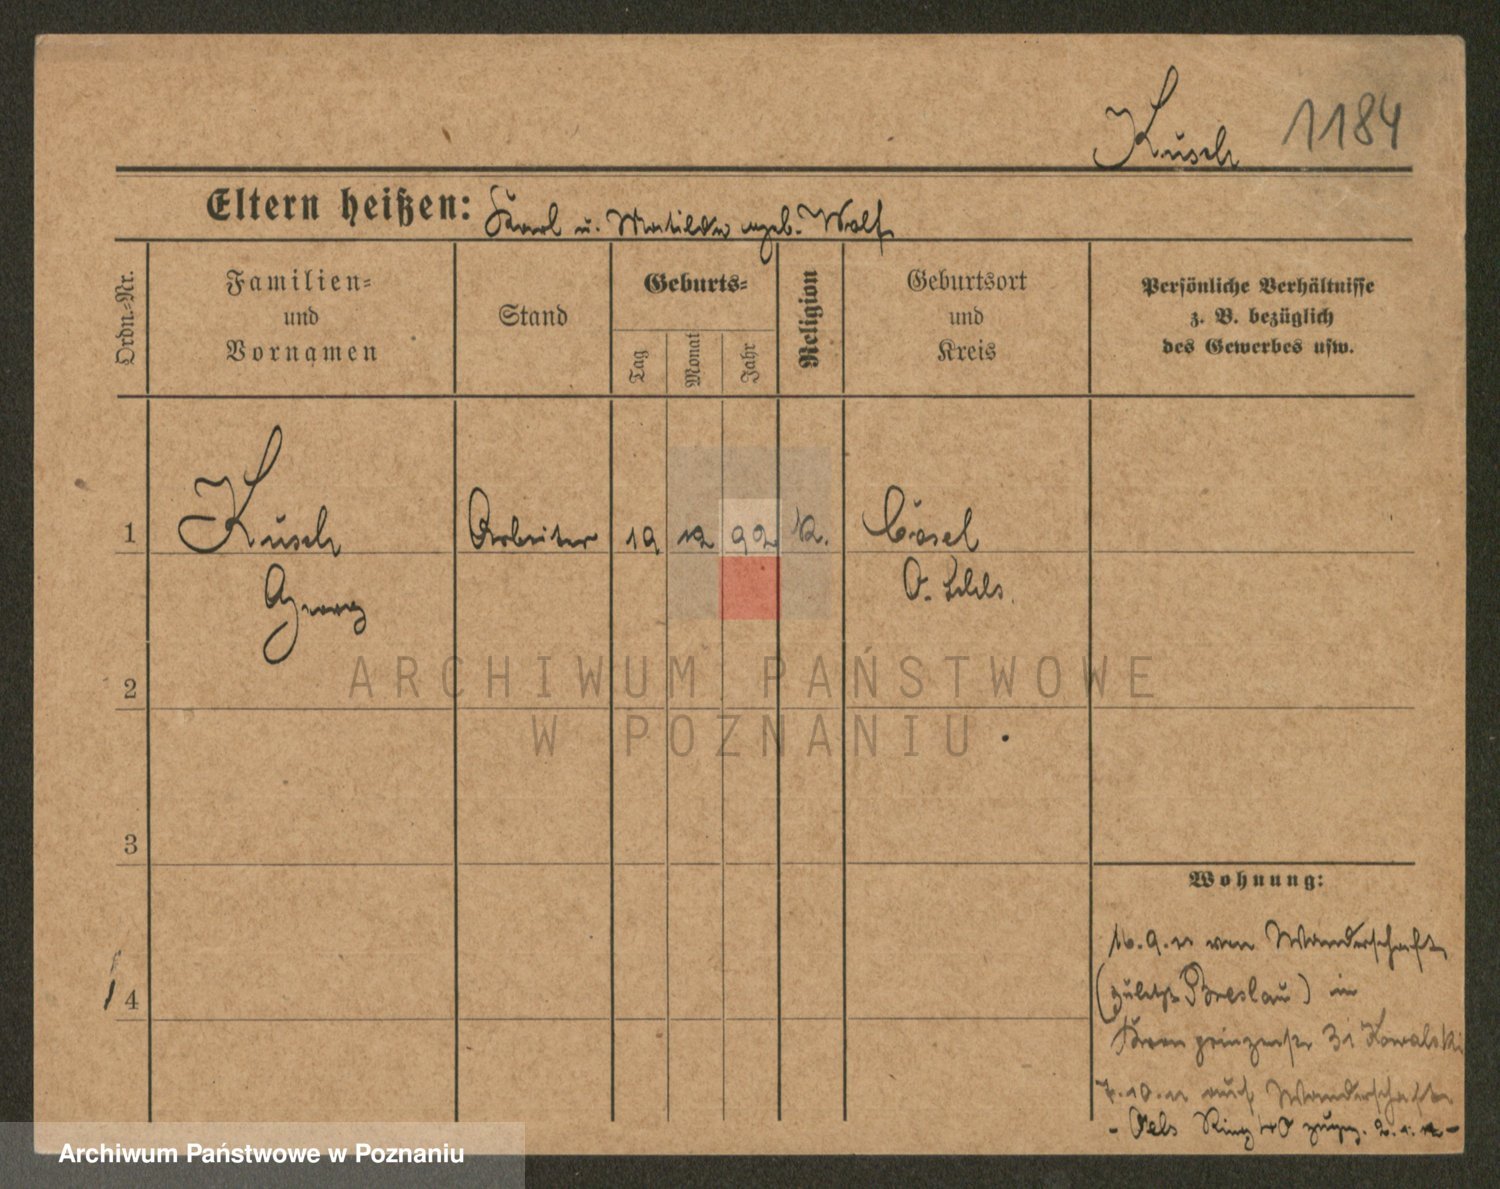 Kusch 1184
Eltern heißen: Karl u. Matilda geb. Wolf
Ordn.=Nr.
Familien=
und
Vornamen
Stand
Geburts=
Tag
Monat
Jahr
Religion
Geburtsort
und
Kreis
Persönliche Verhältnisse
z. B. bezüglich
des Gewerbes usw.
1 Kusch Arbeiter 19 12 92 k. Cosel
Georg O. Schls.
2
ARCHIWUM PAŃSTWOWE
W POZNANIU
3
Wohnung:
16.9.11 von Wanderschaft
(zuletzt Breslau) in
Kronprinzenstr 31 Kowalski
4
7.10.11 auf Wanderschaft
- Oels Ring
Archiwum Państwowe w Poznaniu